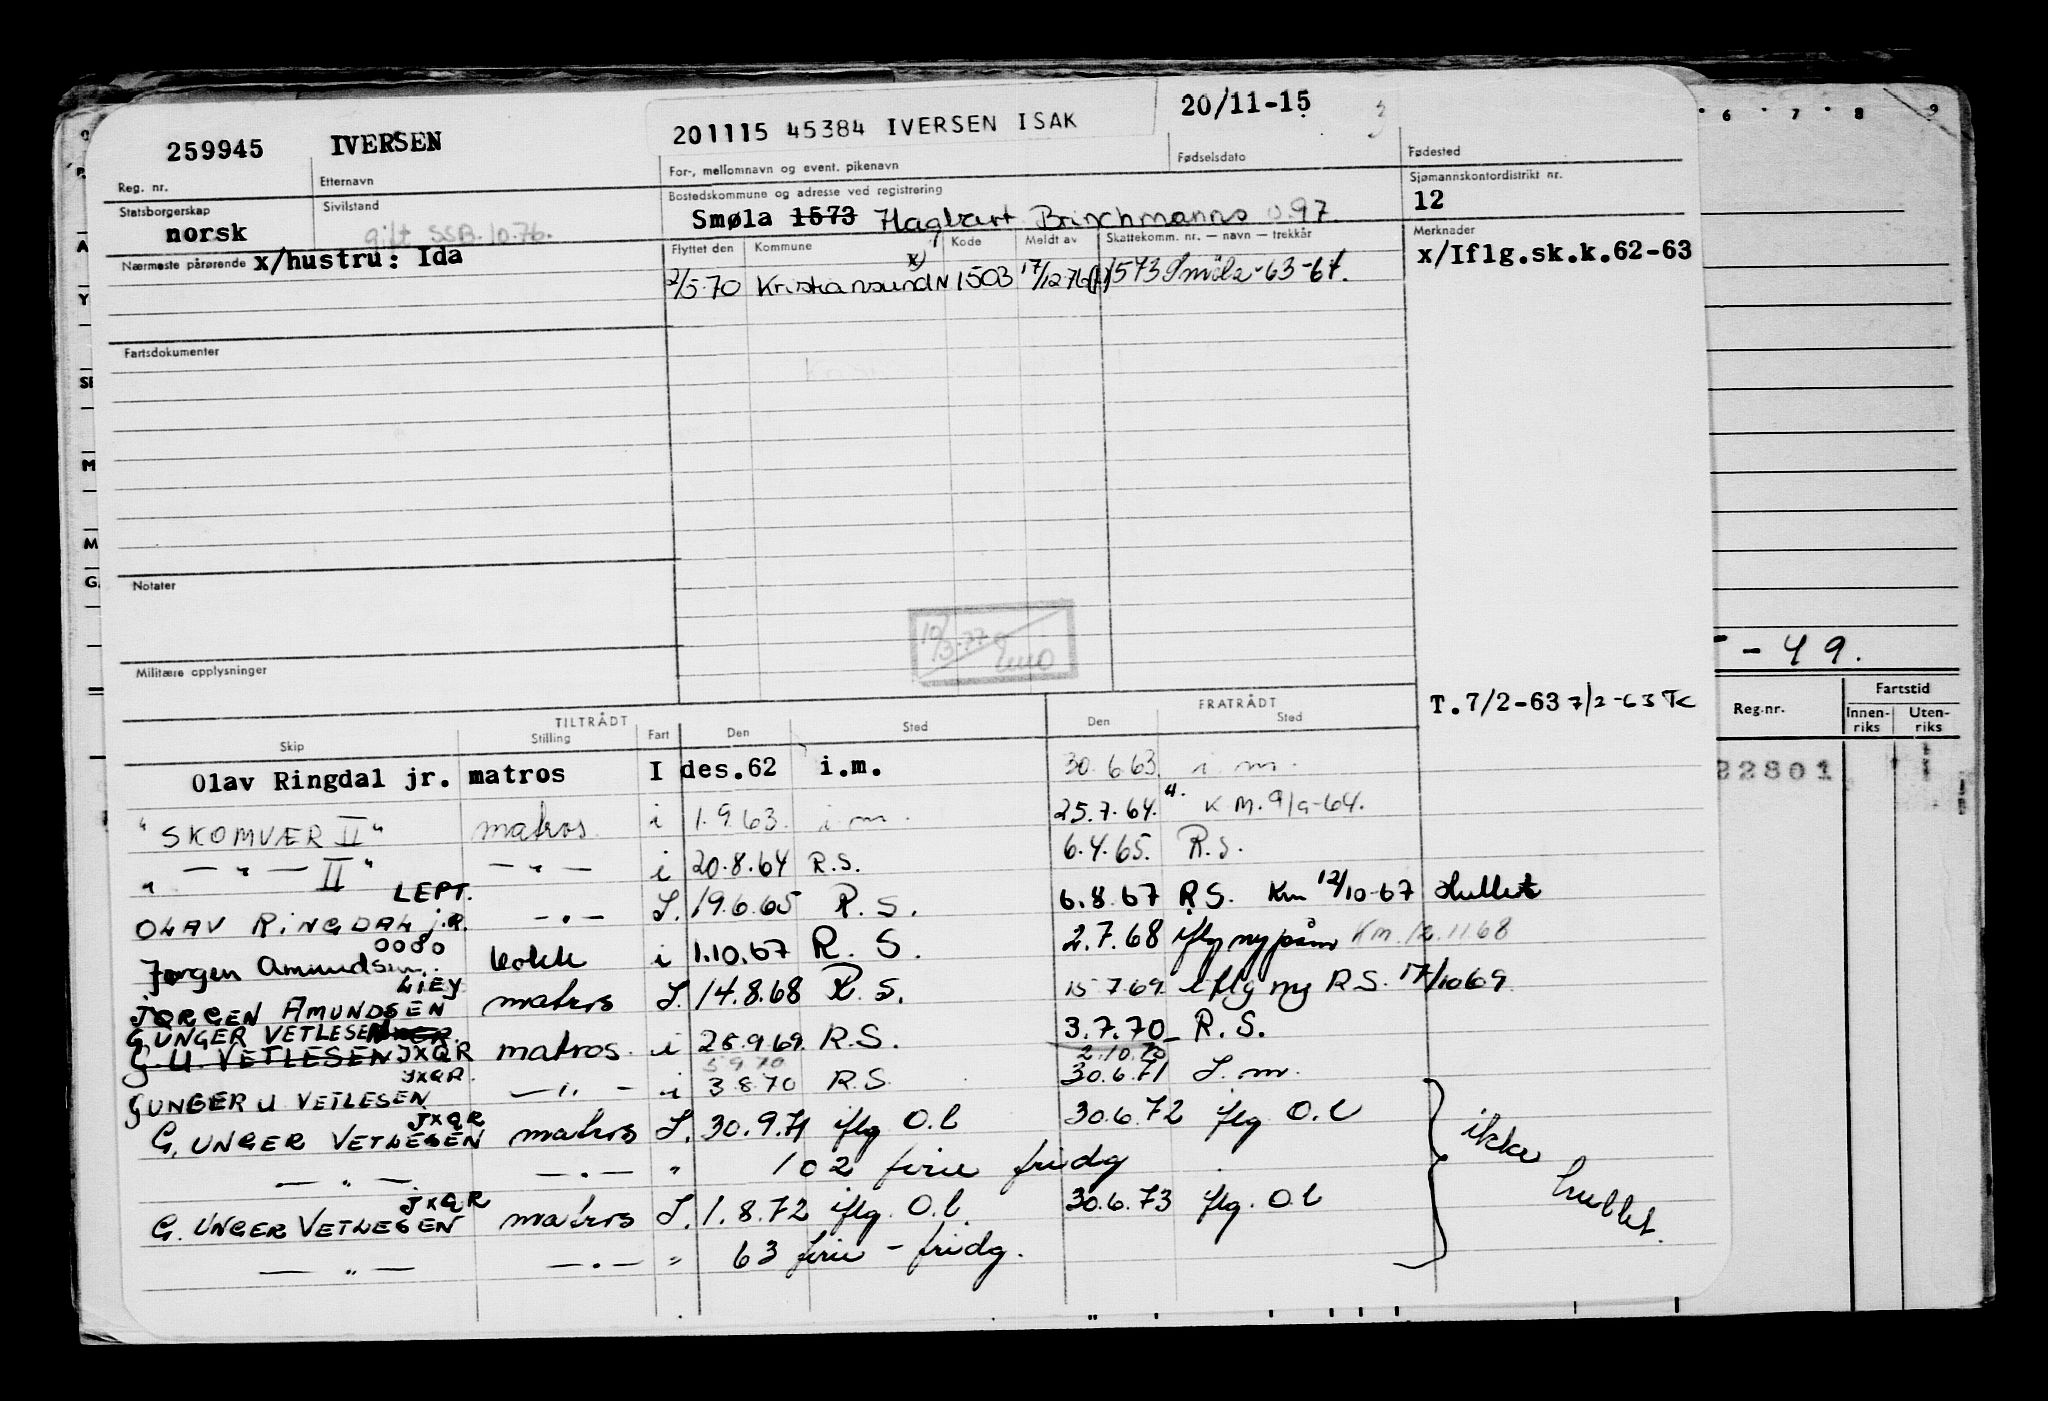 259945 IVERSEN 201115 45384 IVERSEN ISAK 20/11-15
Reg. nr. Etternavn For-, mellomnavn og event. pikenavn Fødselsdato Fødested
Statsborgerskap Sivilstand Bostedskommune og adresse ved registrering Sjømannskontordistrikt nr.
norsk gift SSB.10.76. Smøla 1573 Hagbart Brinchmanns v.97 12
Nærmeste pårørende x/hustru: Ida Flyttet den Kommune Kode Meldt av Skattekomm. nr. — navn — trekkår Merknader
x/Iflg.sk.k.62-63
2/5-70 Kristiansund N x) 1503 17/12-76 1573 Smöla-63-64.
Fartsdokumenter
Notater
Militære opplysninger
T.7/2-63 7/2-63
TILTRÅDT FRATRÅDT
Skip Stilling Fart Den Sted Den Sted
Olav Ringdal jr. matros I des.62 i.m. 30.6.63 i.m.
"SKOMVÆR II" matros i 1.9.63. i.m. 25.7.64. K M. 9/9-64.
" — " — II " — " — i 20.8.64 R.S. 6.4.65. R.S.
LEPT.
OLAV RINGDAL jR. — " — I. 19.6.65 R.S. 6.8.67 R.S. Km 12/10-67 Hullet
Jørgen Amundsen kokk i 1.10.67 R.S. 2.7.68 iflg ny Km. 12.11.68
LIEY
JØRGEN AMUNDSEN matros I. 14.8.68 R.S. 15 7.69. iflg ny R.S. 17/10 69
G UNGER VETLESEN
G. U. VETLESEN JXQR matros. i 25.9.69. R.S. 3.7.70 R.S.
5 9 70 2.10.70
JXQR
GUNGER U. VETLESEN — " — i 3.8.70 R.S. 30.6.71 I.m.
JXQR
G. UNGER VETLESEN matros I. 30.9.71 iflg O.l 30.6.72 iflg O.l
— " — — " — " 102 ferie fridg
ikke hullet.
JXQR
G. UNGER VETLESEN matros I. 1.8.72 iflg. O.l. 30.6.73 iflg. O.l
— " — — " — " 63 ferie - fridg.
6 7 8 9
A
Y
SI
M
M
G.
- 49.
Reg.nr. Fartstid
Innen-riks Uten-riks
22801